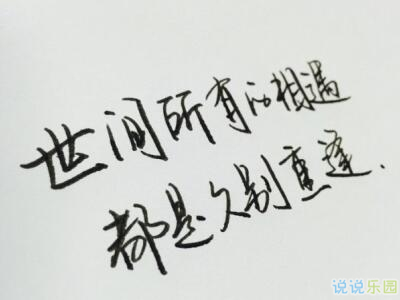 世间所有的相遇
都是久别重逢.
说说乐园